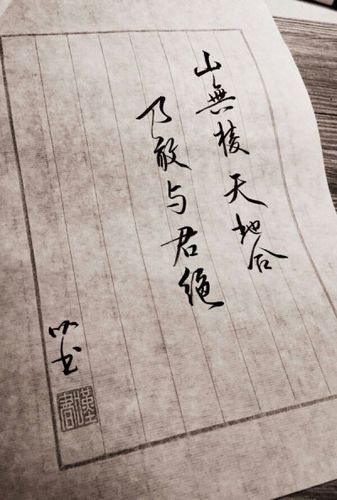 山無棱 天地合
乃敢与君绝
书